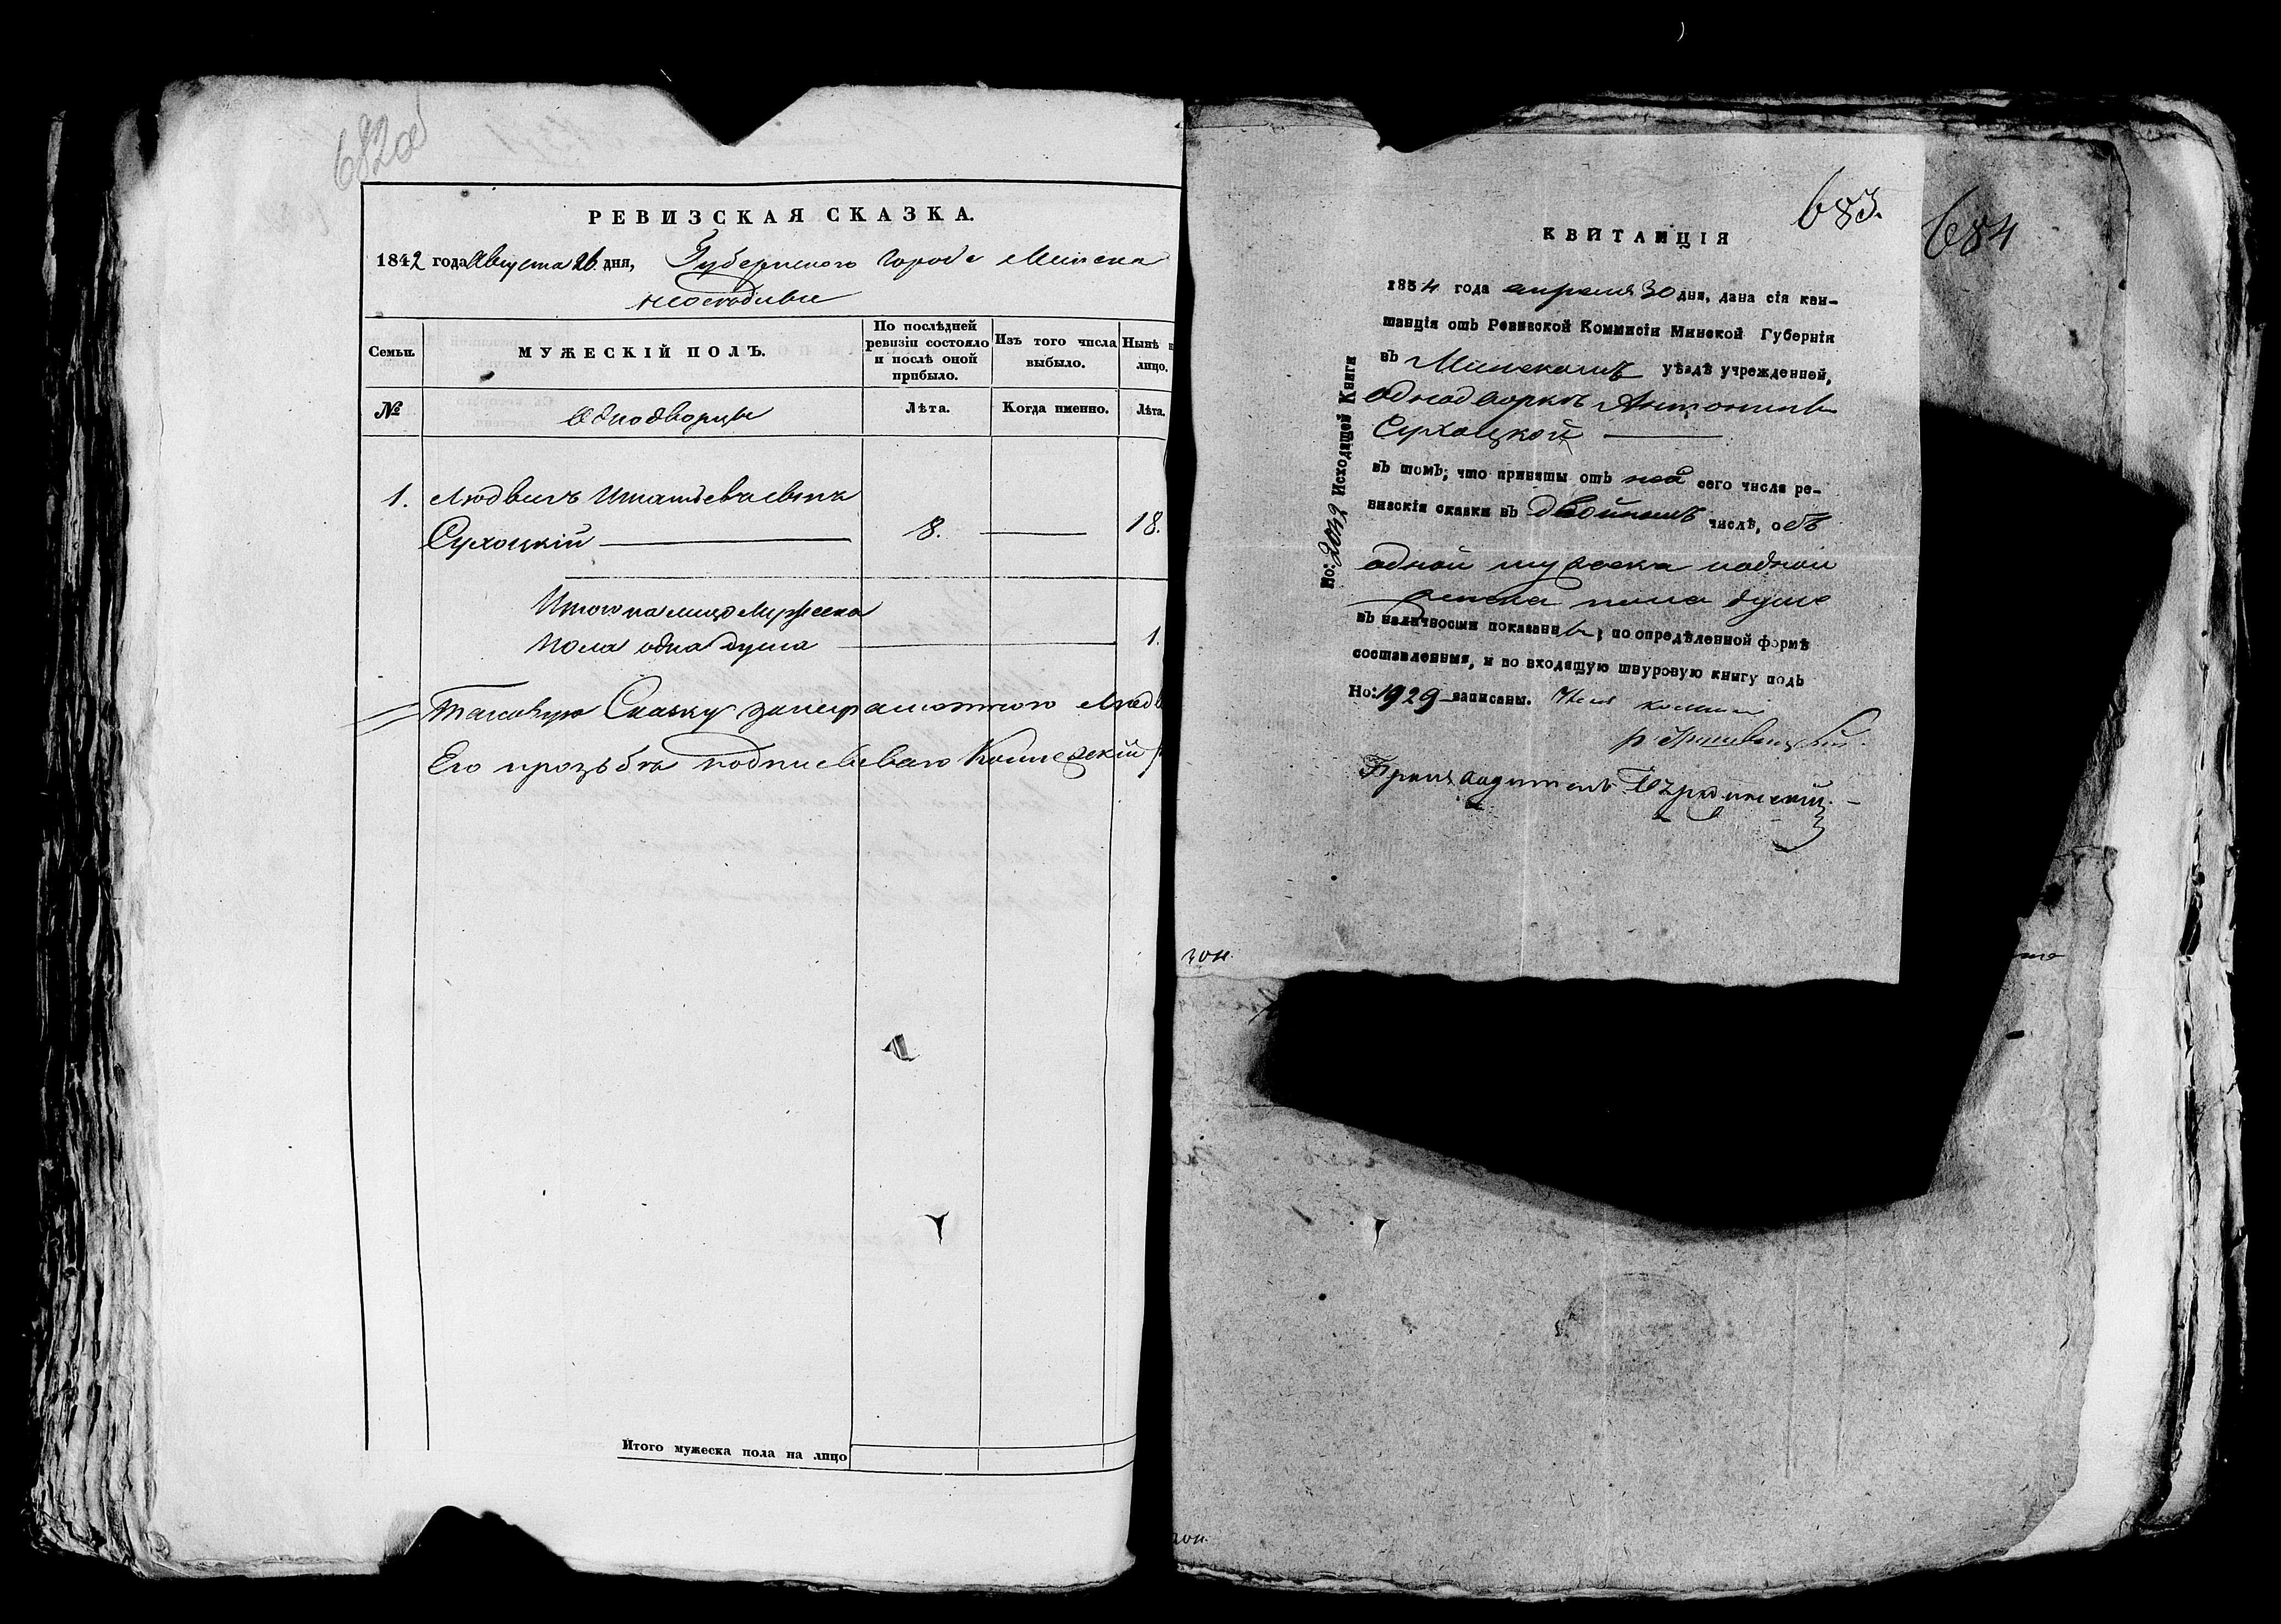 682об
РЕВИЗСКАЯ СКАЗКА.
1842 года Августа 26 дня, Губернского города Минска
Семьи.
МУЖЕСКІЙ ПОЛЪ.
По послѣдней ревизіи состояло и послѣ оной прибыло.
Изъ того числа выбыло.
Нынѣ н лицо.
№
Однодворцы
Лѣта.
Когда именно.
Лѣта.
1. Людвигъ Игнатьевъ сынъ
Сухоцкій 8. 18.
Итого на лицо Мужеска
пола одна душа 1.
Таковую Сказку
Его прозьбѣ подписывалъ
Итого мужеска пола на лицо
683.
684
КВИТАНЦІЯ
1834 года апреля 30 дня, дана сія кви-
танція отъ Ревизской Коммисіи Минской Губерніи
въ Минскомъ уѣздѣ учрежденней,
однодворкѣ Антонинѣ
Сухоцкой
въ томъ, что приняты отъ ней сего числа ре-
визскія сказки въ двойномъ числѣ, объ
одной мужеска иодной
женска пола душе
въ наличности показанны, по опредѣленной формѣ
составленныя, и во входящую шнуровую книгу подъ
Но: 1929 записаны.
Но: 2042 Исходящей Книги